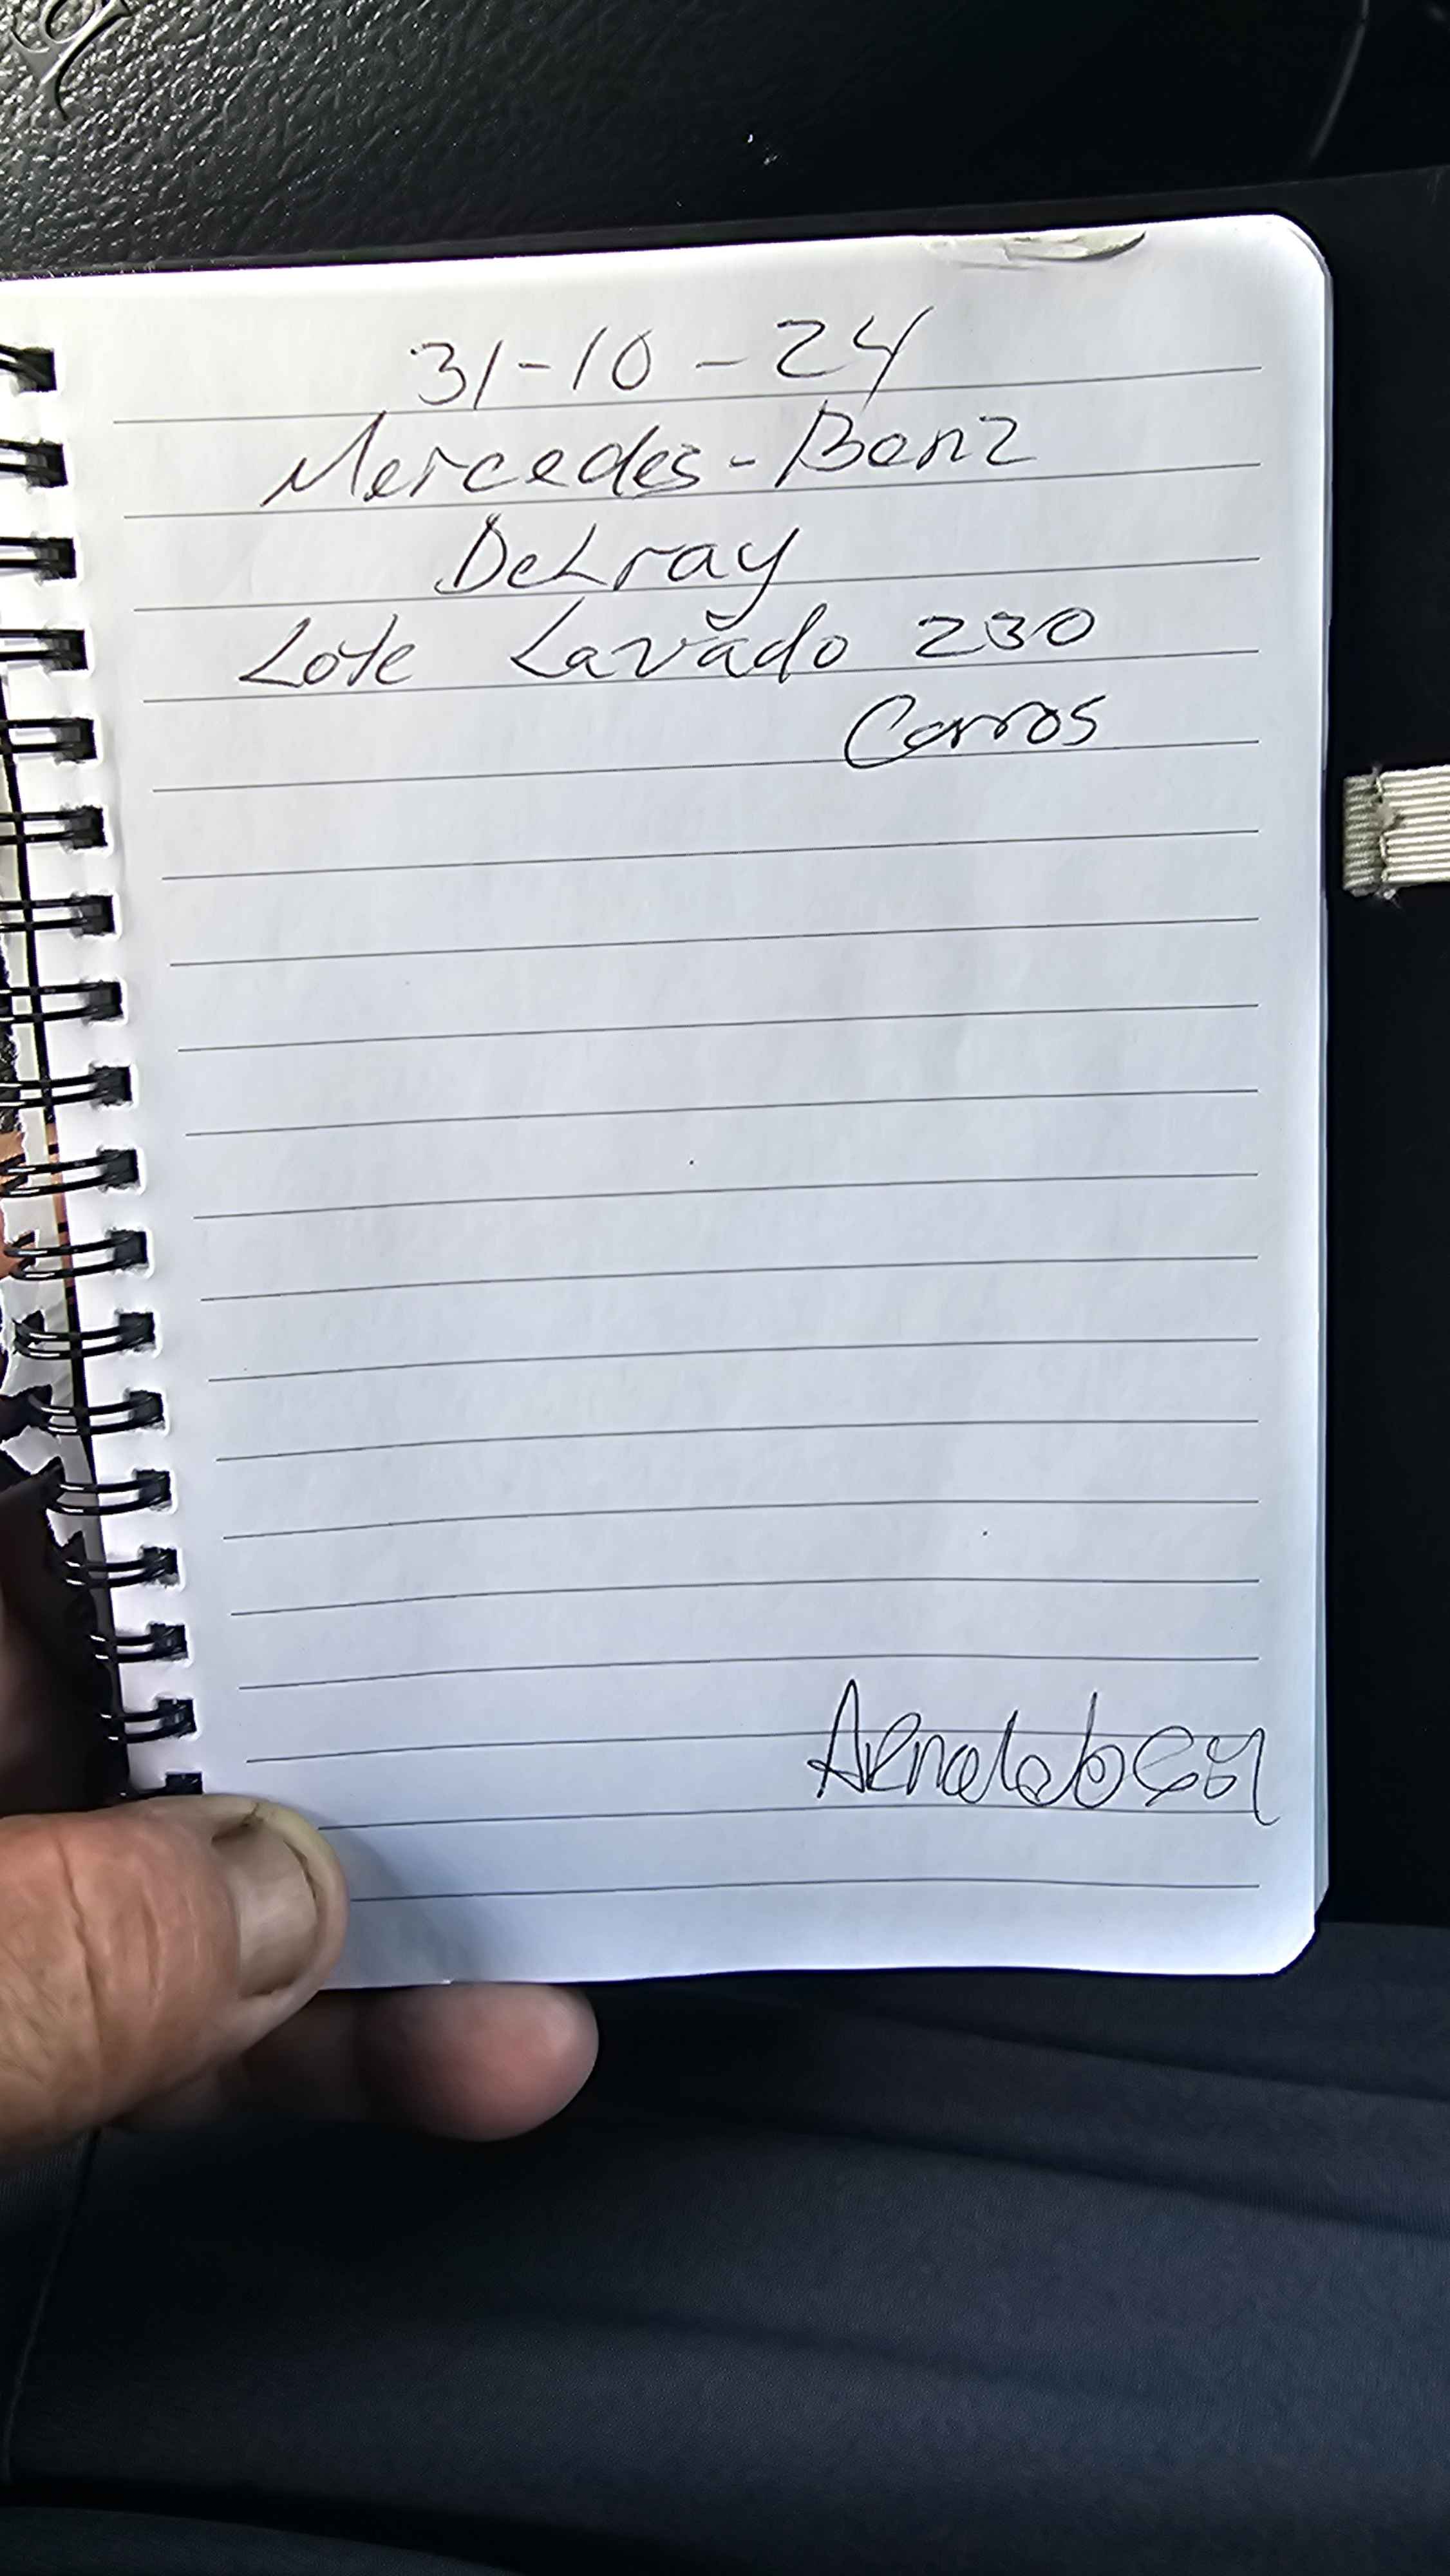 31-10-24
Mercedes-Benz
DeLray
Lote Lavado 230
Carros